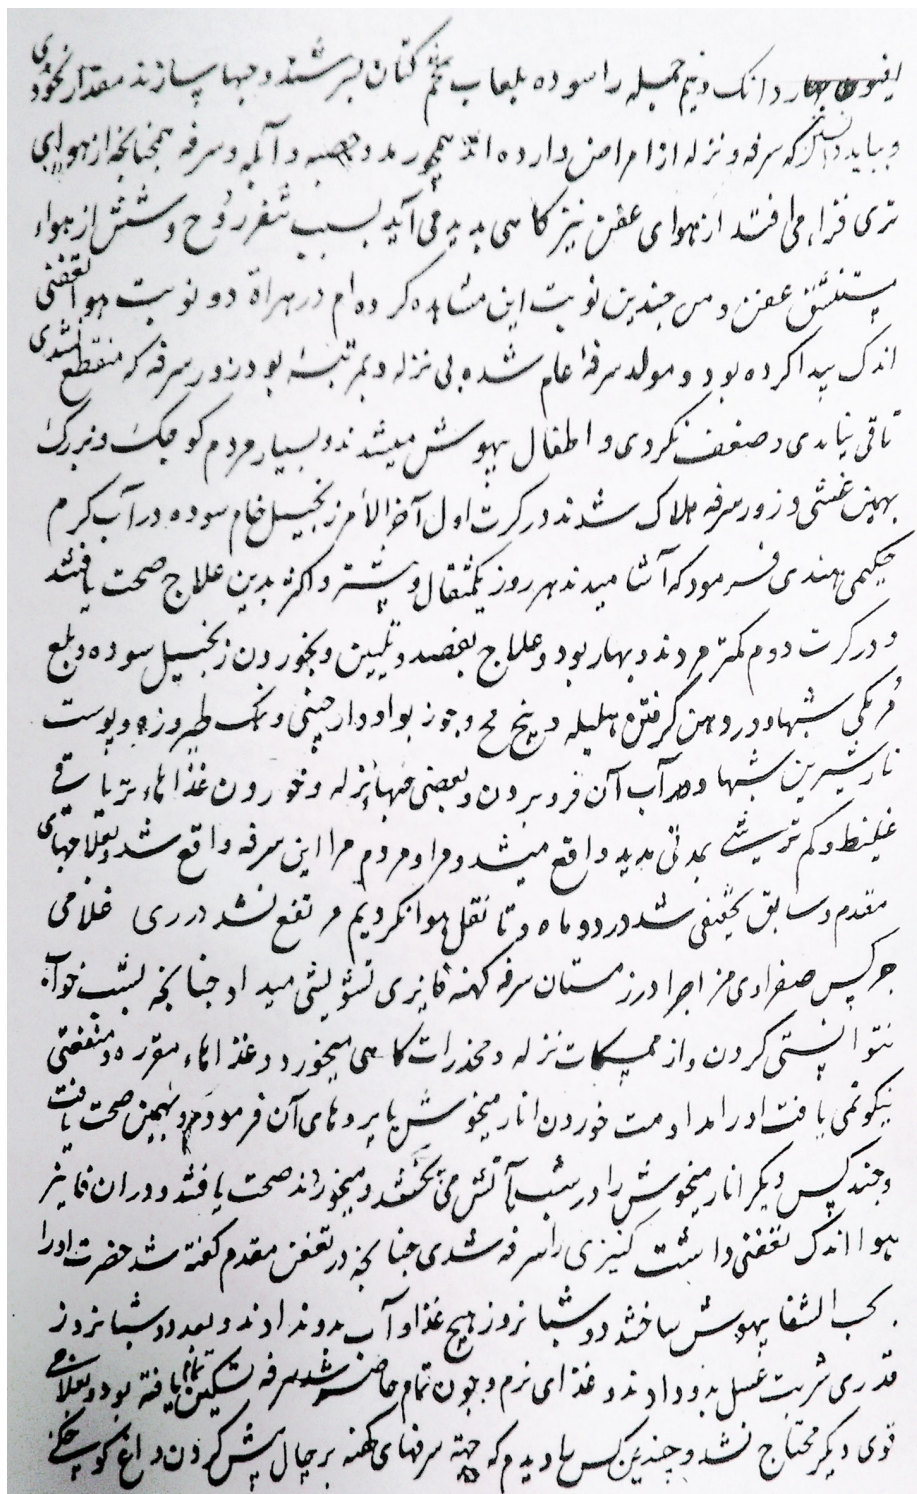 افیون چهار دانک و نیم جمله را سوده بلعاب تخم کتان بسرشند و حبها سازند مقدار نخودی
و بباید دانست که سرفه و نزله از امراض وارده اند همچو رمد و حصبه و آبله و سرفه همچنانچه از هوای
تری فزاء می افتد از هوای عفن نیز کاهی پدید می آید بسبب تنفر روح و شش از هواء
مستنشق عفن و من چندین نوبت این مشاهده کرده ام در هراة دو نوبت هوا تعفنی
اندک پیدا کرده بود و مولد سرفهٔ عام شده بی نزله و بمرتبهٔ بود زور سرفه که منقطع نشدی
تا قی نیامدی و ضعف نکردی و اطفال بیهوش میشدند و بسیار مردم کوچک و بزرک
بهین غشی و زور سرفه هلاک شدند در کرت اول آخر الأمر زنجبیل خام سوده در آب کرم
حکیمی هندی فرمود که آشامیدند هر روز یکمثقال و بیشتر و اکثر بدین علاج صحت یافتند
و در کرت دوم کمتر مردند و بهار بود و علاج بفصد و تلیین و بخوردن زنجبیل سوده و بلع
شبها و در دهن کرفتن هلیله و بیخ مج و جوز بوا و دارچینی و نمک طبرزد و پوست
نار شیرین شبها و آب آن فرو بردن و بعضی حبهاء نزله و خوردن غذاهاء تریاقی
غلیظ و کم ترشی بمدتی مدید واقع میشد و مرا و مردم مرا این سرفه واقع شد و بعلاجهای
مقدم و سابق تخفیفی شد در دو ماه و تا نقل هوا نکردیم مرتفع نشد در ری غلامی
چرکس صفراوی مزاج را در زمستان سرفه کهنه فایزی تشویشی میداد چنانچه بشب خواب
نتوانستی کردن و از ممسکات نزله و مخدرات کاهی میخورد و غذاهاء مقرره و منفعتی
نیکو نمی یافت او را مداومت خوردن انار میخوش با پردهای آن فرمودم و بهمین صحت یافت
و چند کس دیکر انار میخوش را در شب بآتش می و میخوراند صحت یافتند و در ان فایز
هوا اندک تعفنی داشت کنیزی را سرفه شدی چنانچه در تعفن مقدم کفته شد حضرت او را
بحب الشفا بیهوش ساختند دو شبانروز هیچ غذا و آب بدو ندادند و بعد دو شبانروز
قدری شربت عسل بدو دادند و غذای نرم و چون تمام حاضر شد سرفه تسکین تمام یافته بود و بعلاجی
قوی دیکر محتاج نشد و چندین کس را دیدم که جهة سرفهای کهنه بر چال پش کردن داغ کوچکی